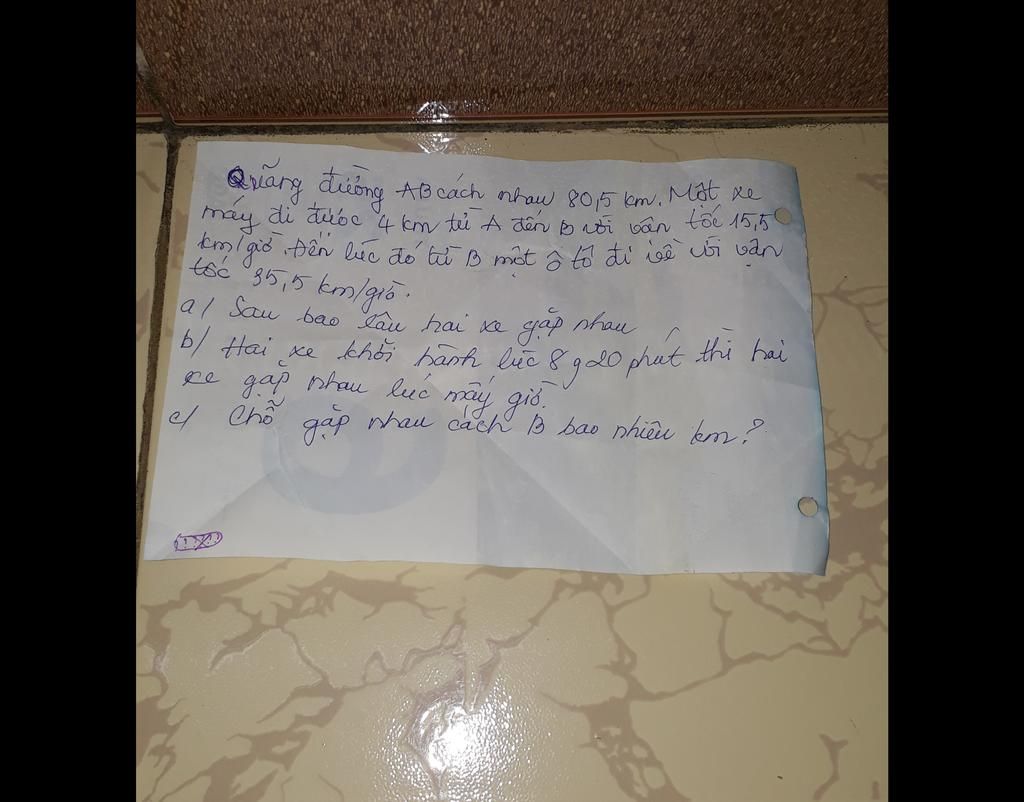 Quãng đường AB cách nhau 80,5 km. Một xe
máy đi được 4 km từ A đến B với vân tốc 15,5
km/giờ. Đến lúc đó từ B một ô tô đi về với vận
tốc 35,5 km/giờ.
a/ Sau bao lâu hai xe gặp nhau
b/ Hai xe khởi hành lúc 8g20 phút thì hai
xe gặp nhau lúc mấy giờ.
c/ Chỗ gặp nhau cách B bao nhiêu km?